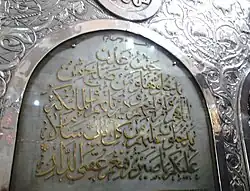 جنات عدن
يدخلونها ومن صلح من
آبائهم وأزواجهم وذرياتهم والملائكة
يدخلون عليهم من كل باب سلام
عليكم بما صبرتم فنعم عقبى الدار